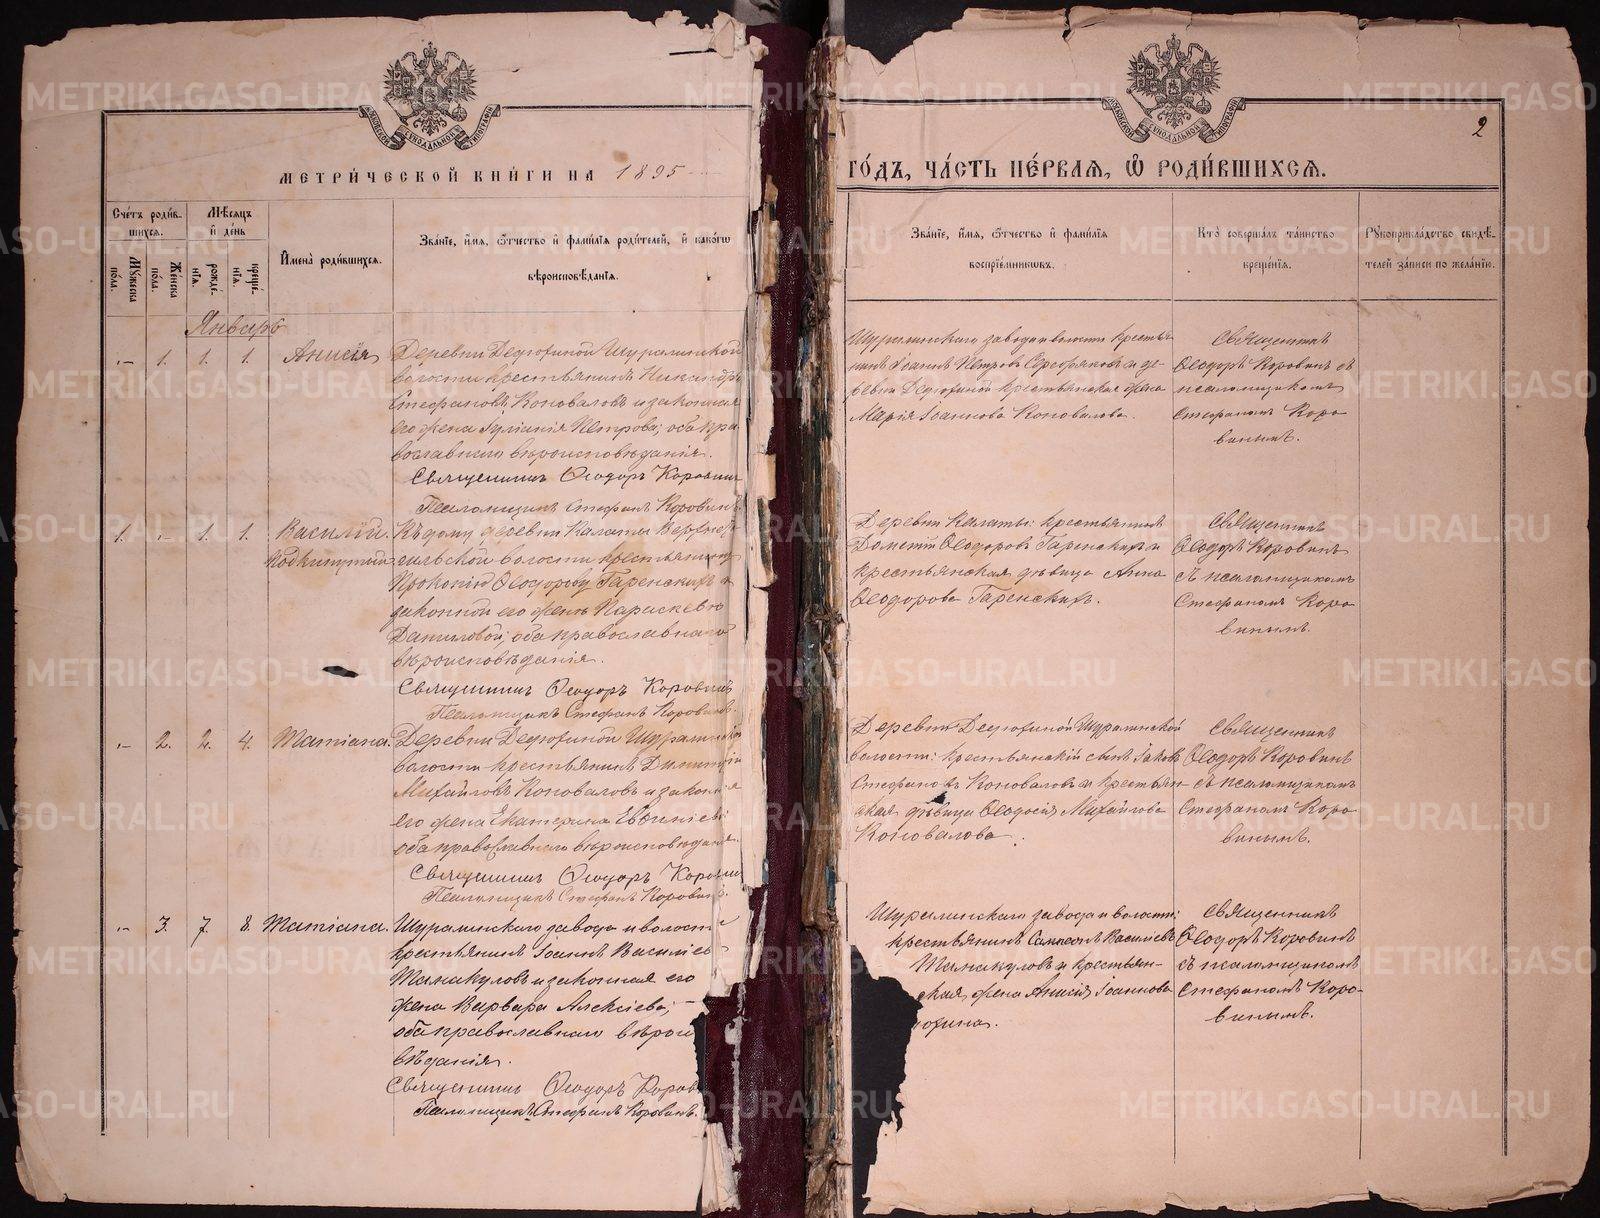 2
МЕТРИ́ЧЕСКОЙ КНИ́ГИ НА 1895
ГО́ДЪ, ЧА́СТЬ ПЕ́РВАЯ, Ѡ РОДИ́ВШИХСЯ.
Сче́тъ роди́в-
шихся.
Мѣ́сяцъ
и де́нь
Мꙋ́жеска
по́ла.
Же́нска
по́ла.
рожде́-
нїя.
креще́-
нїя.
И҆мена̀ роди́вшихся.
Зва́нїе, и҆́мя, ѻ҆́тчество и҆ фами́лїя роди́телей, и҆ како́гѡ
вѣроисповѣ́данїя.
Зва́нїе, и҆́мя, ѻ҆́тчество и҆ фами́лїя
воспрїе́мниковъ.
Кто̀ соверша́лъ та́инство
креще́нїя.
Рꙋкоприкла́дство свидѣ́-
телей за́писи по жела́нїю.
Январь
— 1. 1. 1. Анисія
Деревни Дедюгиной Шуралинской
волости крестьянинъ Никандръ
Стефановъ Коноваловъ и законная
его жена Іуліанія Петрова; оба пра
вославнаго вѣроисповѣданія.
Священникъ Ѳеодоръ Коровинъ
Псаломщикъ Стефанъ Коровинъ
Шуралинскаго завода и волости крестья
нинъ Іоаннъ Петровъ Серебряковъ и де-
ревни Дедюгиной крестьянская жена
Марія Іоаннова Коновалова.
Священникъ
Ѳеодоръ Коровинъ съ
псаломщикомъ
Стефаномъ Коро
винымъ.
1. — 1. 1. Василій.
подкинутый
Къ дому деревни Калаты Верхне-
сельской волости крестьянину
Прокопію Ѳеодорову Гаренскихъ и
законной его женѣ Параскевѣ
Даниловой; оба православнаго
вѣроисповѣданія.
Священникъ Ѳеодоръ Коровинъ
Псаломщикъ Стефанъ Коровинъ.
Деревни Калаты: крестьянинъ
Дометій Ѳеодоровъ Гаренскихъ и
крестьянская дѣвица Анна
Ѳеодорова Гаренскихъ.
Священникъ
Ѳеодоръ Коровинъ
съ псаломщикомъ
Стефаномъ Коро
винымъ.
— 2. 2. 4. Татіана.
Деревни Дедюгиной Шуралинской
волости крестьянинъ Димитрій
Михайловъ Коноваловъ и законная
его жена Екатерина Евѳиміева
оба православнаго вѣроисповѣданія.
Священникъ Ѳеодоръ Коровин
Псаломщикъ Стефанъ Коровинъ.
Деревни Дедюгиной Шуралинской
волости: крестьянскій сынъ Іаковъ
Стефановъ Коноваловъ и крестьян-
ская дѣвица Ѳеодосія Михайлова
Коновалова.
Священникъ
Ѳеодоръ Коровинъ
съ псаломщикомъ
Стефаномъ Коро
винымъ.
— 3. 7. 8. Татіана.
Шуралинскаго завода и волости
крестьянинъ Іоаннъ Василіев
Танакуловъ и законная его
жена Варвара Алексіева; —
оба православнаго вѣрои
вѣданія.
Священникъ Ѳеодоръ Коров
Псаломщикъ Стефанъ Коровинъ.
Шуралинскаго завода и волости:
крестьянинъ Сампсонъ Василіевъ
Танакуловъ и крестьян-
ская жена Анисія Іоаннова
юхина.
Священникъ
Ѳеодоръ Коровинъ
съ псаломщикомъ
Стефаномъ Коро-
винымъ.
METRIKI.GASO-URAL.RU